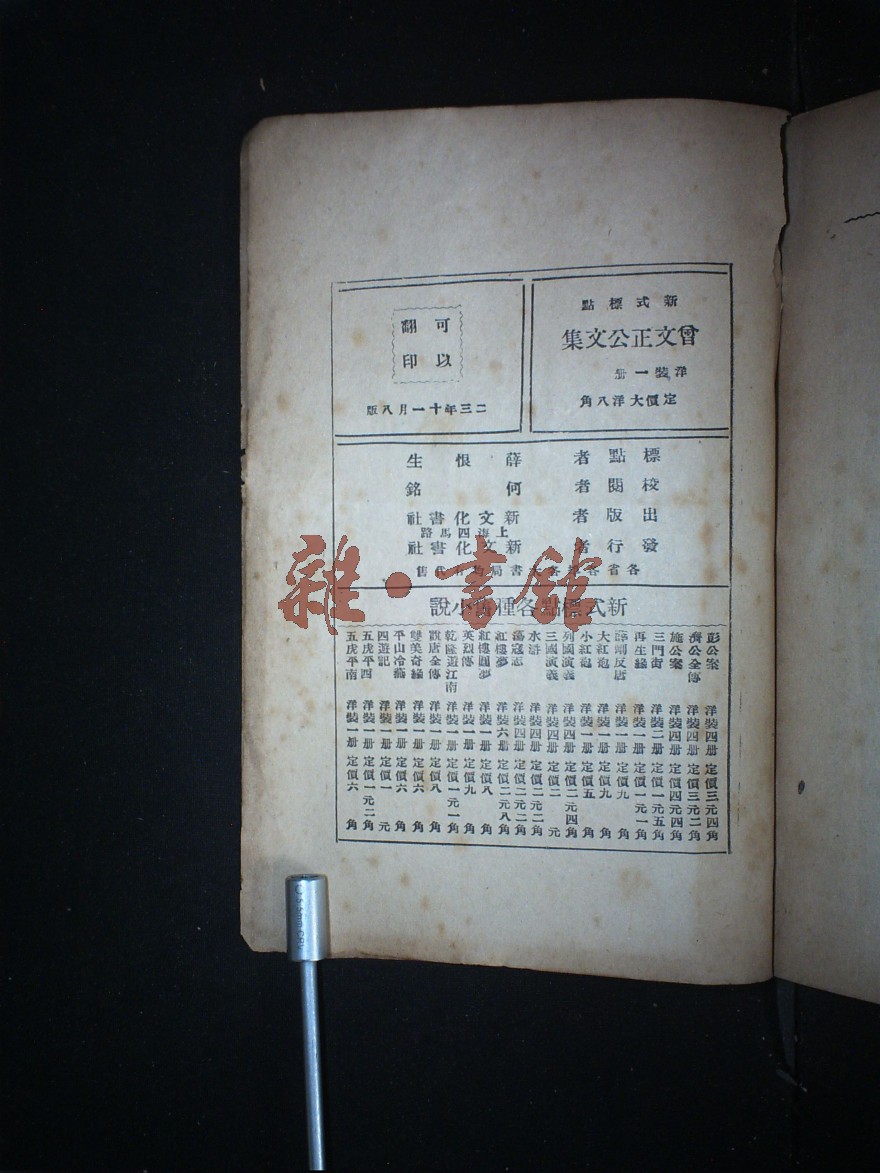 新式標點
曾文正公文集
洋裝一册
定價大洋八角
可以
翻印
二三年十一月八版
標點者 薛恨生
校閱者 何銘
出版者 新文化書社
上海四馬路
發行者 新文化書社
各省各大書局均有代售
新式標點各種舊小說
彭公案 洋裝四册 定價三元四角
濟公全傳 洋裝四册 定價三元二角
施公案 洋裝四册 定價四元四角
三門街 洋裝二册 定價一元五角
再生緣 洋裝一册 定價一元一角
薛剛反唐 洋裝一册 定價九角
大紅袍 洋裝一册 定價九角
小紅袍 洋裝一册 定價五角
列國演義 洋裝四册 定價二元四角
三國演義 洋裝四册 定價二元
水滸 洋裝四册 定價二元二角
蕩寇志 洋裝四册 定價二元二角
紅樓夢 洋裝六册 定價二元八角
紅樓圓夢 洋裝一册 定價八角
英烈傳 洋裝一册 定價九角
乾隆遊江南 洋裝一册 定價一元一角
說唐全傳 洋裝一册 定價八角
雙美奇緣 洋裝一册 定價六角
平山冷燕 洋裝一册 定價六角
四遊記 洋裝一册 定價一元
五虎平西 洋裝一册 定價一元二角
五虎平南 洋裝一册 定價六角
雜·書館